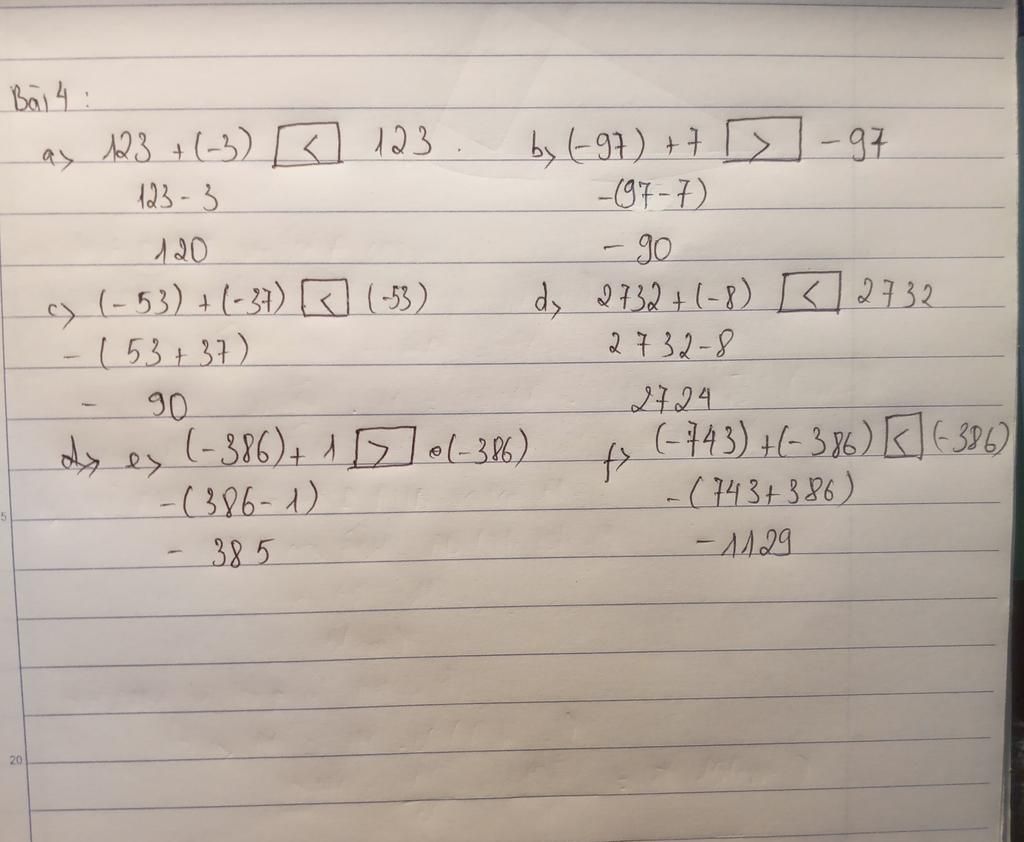 Bài 4 :
a> 123 + (-3) < 123 . b> (-97) + 7 > -97
123 - 3 -(97-7)
120 - 90
c> (-53) + (-37) < (-53) d> 2732 + (-8) < 2732
- (53 + 37) 2732-8
- 90 2724
d> e> (-386) + 1 > (-386) f> (-743) + (-386) < (-386)
-(386 - 1) -(743+386)
- 385 -1129
5
20